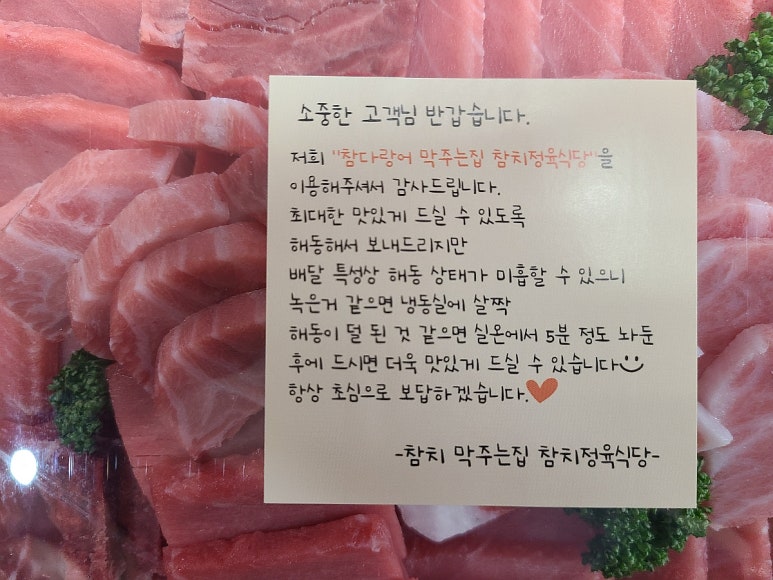 소중한 고객님 반갑습니다.
저희 "참다랑어 막주는집 참치정육식당"을
이용해주셔서 감사드립니다.
최대한 맛있게 드실 수 있도록
해동해서 보내드리지만
배달 특성상 해동 상태가 미흡할 수 있으니
녹은거 같으면 냉동실에 살짝
해동이 덜 된 것 같으면 실온에서 5분 정도 놔둔
후에 드시면 더욱 맛있게 드실 수 있습니다
항상 초심으로 보답하겠습니다.
-참치 막주는집 참치정육식당-